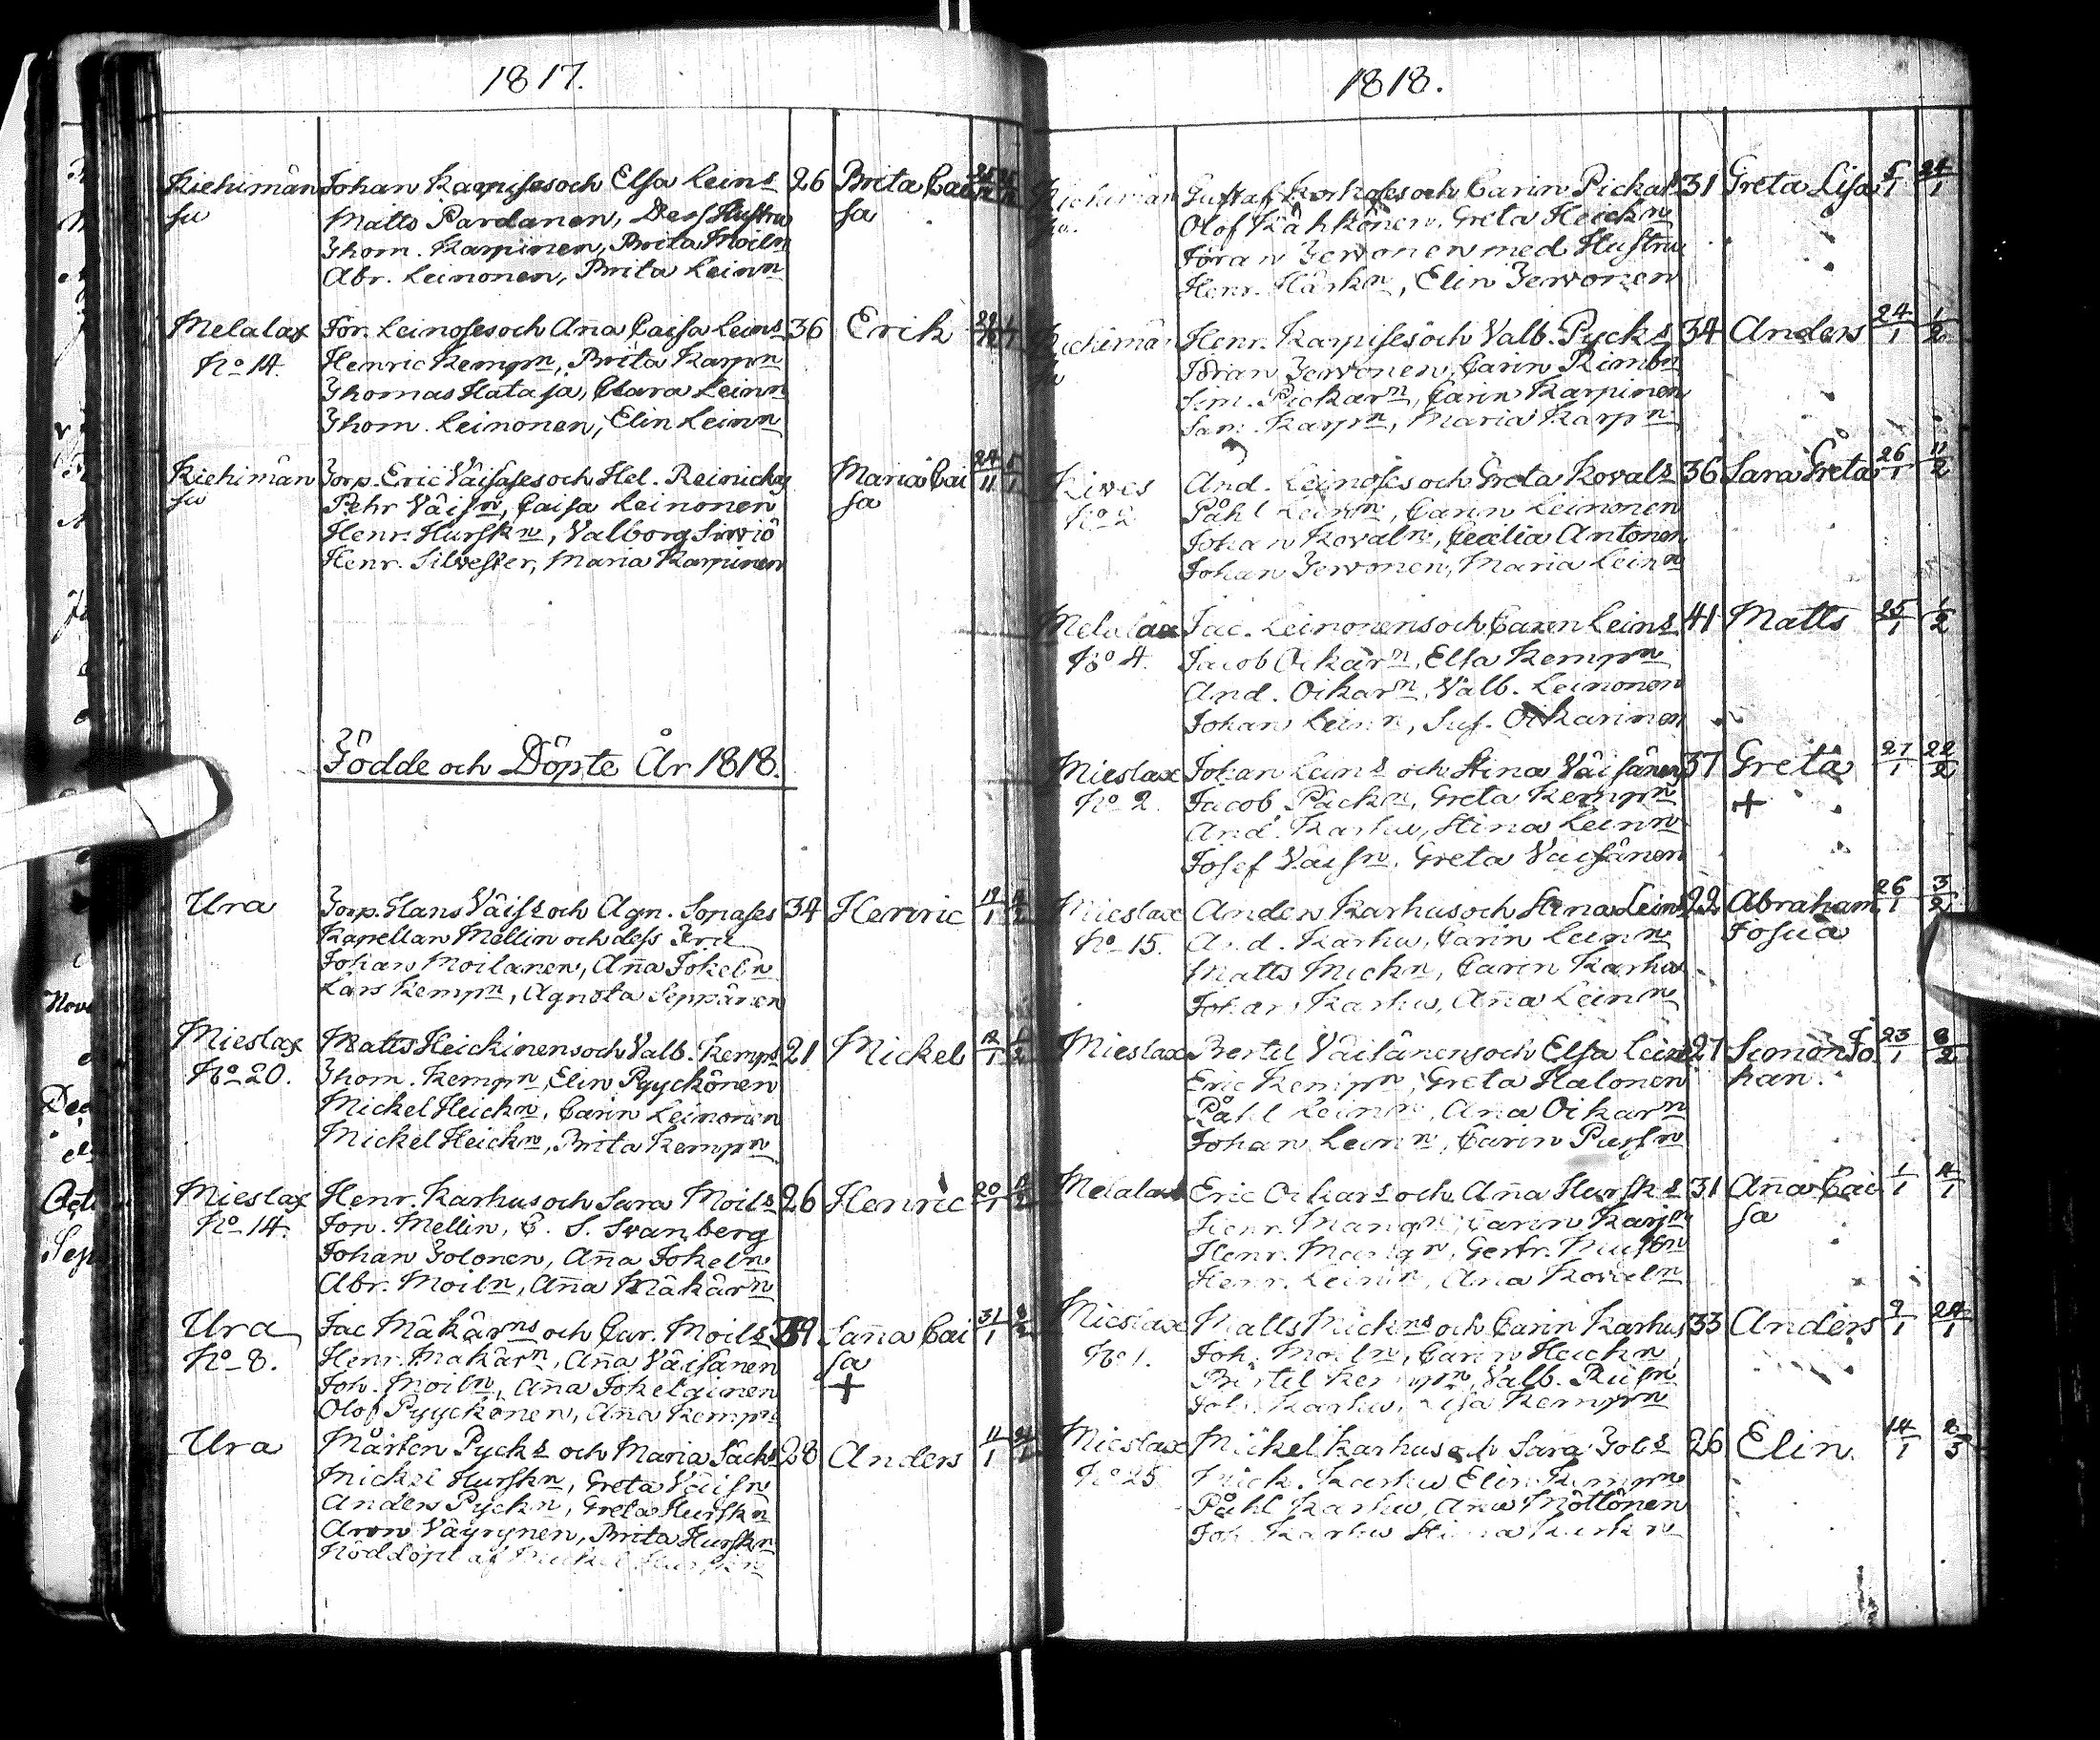 1817.
Kiehimän Johan Karpises och Elsa Leins 26 Brita Cai
su Matts Pardanen, Dess Hustru sa
Thom. Karpinen, Brita Moiln
Abr. Leinonen, Brita Leinn
Melalax Jör. Leinoses och Aña Caisa Leins 36 Erik
No 14. Henric Kempn, Brita Karpn
Thomas Hataja, Clara Leinn
Thom. Leinonen, Elin Leinn
Kiehimän Torp. Eric Väisäses och Hel. Reinicky Maria Cai 24/11
su Pehr Väisn, Caisa Leinonen sa
Henr. Hurskn, Valborg Sirviö
Henr. Silvester, Maria Karpinen
Födde och Döpte År 1818.
Ura Torp. Hans Väiss och Agn. Sopases 34 Henric
Kapellan Mellin och dess Fru
Johan Moilanen, Aña Jokeln
Lars Kempn, Agneta Seppänen
Mieslax Matts Heickinens och Valb. Kemps 21 Mickel
No 20. Thom. Kempn, Elin Pyyckönen
Mickel Heickn, Carin Leinonen
Mickel Heickn, Brita Kempn
Mieslax Henr. Karhus och Sara Moils 26 Henric 20/1
No 14. Jon. Mellin, C. S. Svanberg
Johan Tolonen, Aña Jokeln
Abr. Moiln, Aña Mäkärn
Ura Jac Mäkärns och Car. Moils 39 Saña Cai 31/1
No 8. Henr. Mäkärn, Aña Väisänen sa
Joh. Moiln, Aña Jokelainen +
Olof Pyyckönen, Aña Kempn
Ura Mårten Pycks och Maria Säcks 28 Anders 11/1
Mickel Hurskn, Greta Väisn
Anders Pyckn, Greta Hurskn
Aron Väyrynen, Brita Hurskn
Nöddöpt af Mickel Hurskn
1818.
Kiehimän Gustaf Korhoses och Carin Pickar 31 Greta Lisa 5/1 24/1
su. Olof Kähkönen, Greta Heickn
Jöran Tervonen med Hustru
Henr. Härkn, Elin Tervonen
Kiehimän Henr. Karpises och Valb. Pycks 34 Anders 24/1 1/2
su Jöran Tervonen, Carin Rimbn
Sim. Pickarn, Carin Karpinen
Sam. Karpn, Maria Karpn
Kives And. Leinoses och Greta Kovals 36 Sara Greta 26/1 11/2
No 2 Påhl Leinn, Carin Leinonen
Johan Kovaln, Cecilia Antonen
Johan Tervonen, Maria Leinn
Melalax Jac. Leinonens och Caren Leins 41 Matts 25/1 1/2
No 4. Jacob Oikarn, Elsa Kempn
And. Oikarn, Valb. Leinonen
Johan Leinn, Sus. Oikarinen
Mieslax Johan Leins och Stina Väisänens 37 Greta 27/1 22/2
No 2. Jacob Päckn, Greta Kempn +
And. Karhu, Stina Leinn
Josef Väisn, Greta Väisänen
Mieslax Anders Karhus och Stina Leins 22 Abraham 26/1 3/2
No 15. And. Karhu, Carin Leinn Josua
Matts Mickn, Carin Karhu
Johan Karhu, Aña Leinn
Mieslax Bertil Väisänens och Elsa Leins 27 Simon Jo 23/1 8/2
Eric Kempn, Greta Halonen han.
Påhl Leinn, Aña Oikarn
Johan Leinn, Carin Pursn
Melalax Eric Oikars och Aña Hursks 31 Aña Cai 1/1 4/1
Henr. Mangn, Carin Karpn sa
Henr. Mangn, Gertr.
Henr. Leinn, Aña Kovaln
Mieslax Matts Mickns och Carin Karhus 33 Anders 9/1 24/1
No 1. Joh. Moiln, Carin Heickn,
Bertil Kempn, Valb. Rusn
Joh. Karhu, Lisa Kempn
Mieslax Mickel Karhus och Sara Tols 26 Elin. 14/1 8/3
No 25 Mick. Karhu Elin Kempn
Påhl Karhu, Aña Möttönen
Joh. Karhu Stina